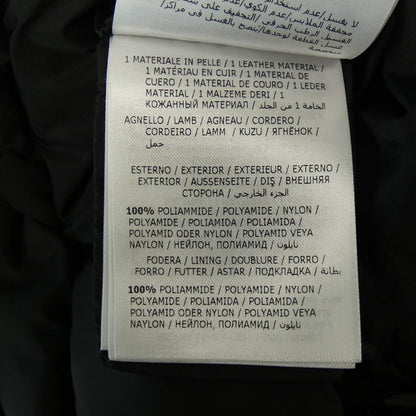 لا يغسل/عدم استخدام
مجففة الملابس/عدم الكوي/عدم
الغسيل الرطب الحرفي/التجفيف على
غسل القطعة لوحدها/ينصح بالغسل في مراكز/
1 MATERIALE IN PELLE / 1 LEATHER MATERIAL /
1 MATÉRIAU EN CUIR / 1 MATERIAL DE
CUERO / 1 MATERIAL DE COURO / 1 LEDER
MATERIAL / 1 MALZEME DERI / 1
КОЖАННЫЙ МАТЕРИАЛ / الخامة 1 من الجلد
AGNELLO / LAMB / AGNEAU / CORDERO /
CORDEIRO / LAMM / KUZU / ЯГНЁНОК /
حمل
ESTERNO / EXTERIOR / EXTERIEUR / EXTERNO /
EXTERIOR / AUSSENSEITE / DIŞ / ВНЕШНЯЯ
СТОРОНА / الجزء الخارجي
100% POLIAMMIDE / POLYAMIDE / NYLON /
POLYAMIDE / POLIAMIDA / POLIAMIDA /
POLYAMID ODER NYLON / POLYAMID VEYA
NAYLON / НЕЙЛОН, ПОЛИАМИД / نايلون
FODERA / LINING / DOUBLURE / FORRO /
FORRO / FUTTER / ASTAR / ПОДКЛАДКА / بطانة
100% POLIAMMIDE / POLYAMIDE / NYLON /
POLYAMIDE / POLIAMIDA / POLIAMIDA /
POLYAMID ODER NYLON / POLYAMID VEYA
NAYLON / НЕЙЛОН, ПОЛИАМИД / نايلون